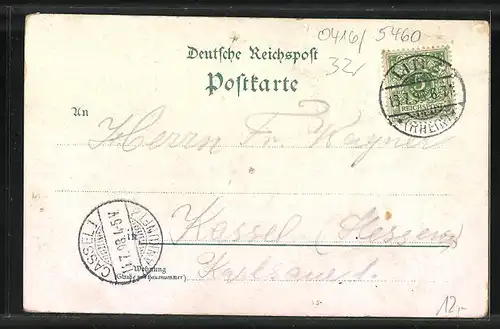 0416/5460
32r
Deutsche Reichspost
Postkarte
REICHSPOST
(RHEIN)
An
Herrn Fr. Wagner
CASSEL 1
Kassel (Hessen)
in
Wohnung
(Straße und Hausnummer)
12,-